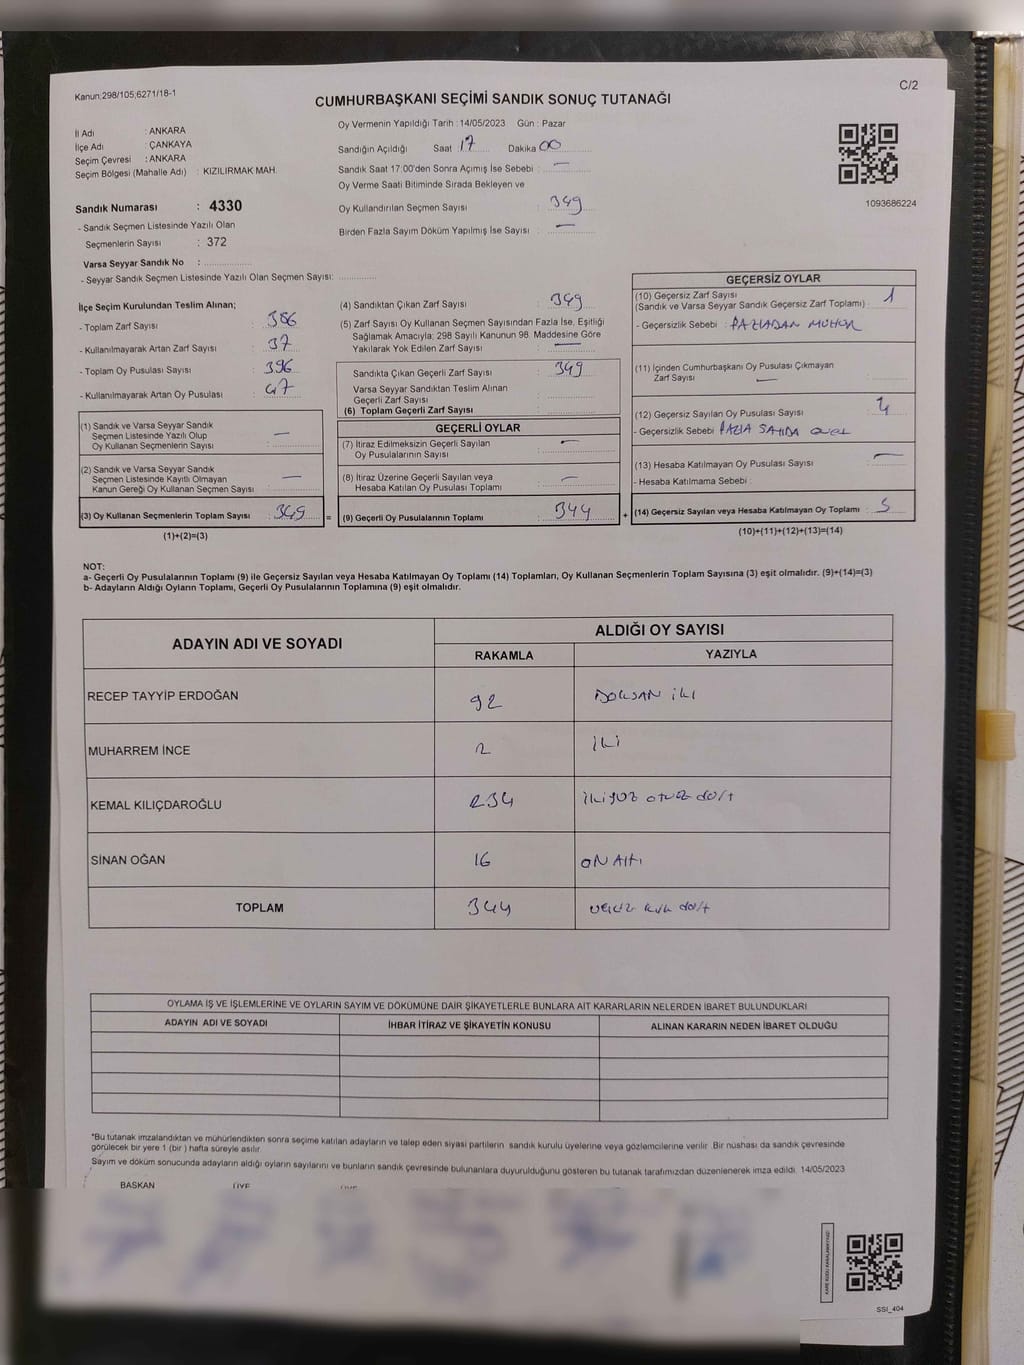 Kanun:298/105,6271/18-1
C/2
CUMHURBAŞKANI SEÇİMİ SANDIK SONUÇ TUTANAĞI
İl Adı : ANKARA
İlçe Adı : ÇANKAYA
Seçim Çevresi : ANKARA
Seçim Bölgesi (Mahalle Adı) : KIZILIRMAK MAH.
Sandık Numarası : 4330
- Sandık Seçmen Listesinde Yazılı Olan
Seçmenlerin Sayısı : 372
Varsa Seyyar Sandık No :
- Seyyar Sandık Seçmen Listesinde Yazılı Olan Seçmen Sayısı:
Oy Vermenin Yapıldığı Tarih : 14/05/2023 Gün : Pazar
Sandığın Açıldığı Saat 17 Dakika 00
Sandık Saat 17:00'den Sonra Açımış İse Sebebi : —
Oy Verme Saati Bitiminde Sırada Bekleyen ve
Oy Kullandırılan Seçmen Sayısı : 349
Birden Fazla Sayım Döküm Yapılmış İse Sayısı : —
1093686224
İlçe Seçim Kurulundan Teslim Alınan;
- Toplam Zarf Sayısı : 386
- Kullanılmayarak Artan Zarf Sayısı : 37
- Toplam Oy Pusulası Sayısı : 396
- Kullanılmayarak Artan Oy Pusulası : 47
(1) Sandık ve Varsa Seyyar Sandık
Seçmen Listesinde Yazılı Olup
Oy Kullanan Seçmenlerin Sayısı : —
(2) Sandık ve Varsa Seyyar Sandık
Seçmen Listesinde Kayıtlı Olmayan
Kanun Gereği Oy Kullanan Seçmen Sayısı : —
(3) Oy Kullanan Seçmenlerin Toplam Sayısı : 349 =
(1)+(2)=(3)
(4) Sandıktan Çıkan Zarf Sayısı : 349
(5) Zarf Sayısı Oy Kullanan Seçmen Sayısından Fazla İse, Eşitliği
Sağlamak Amacıyla; 298 Sayılı Kanunun 98. Maddesine Göre
Yakılarak Yok Edilen Zarf Sayısı : —
Sandıkta Çıkan Geçerli Zarf Sayısı : 349
Varsa Seyyar Sandıktan Teslim Alınan
Geçerli Zarf Sayısı :
(6) Toplam Geçerli Zarf Sayısı :
GEÇERLİ OYLAR
(7) İtiraz Edilmeksizin Geçerli Sayılan
Oy Pusulalarının Sayısı : —
(8) İtiraz Üzerine Geçerli Sayılan veya
Hesaba Katılan Oy Pusulası Toplamı : —
(9) Geçerli Oy Pusulalarının Toplamı : 344 +
GEÇERSİZ OYLAR
(10) Geçersiz Zarf Sayısı
(Sandık ve Varsa Seyyar Sandık Geçersiz Zarf Toplamı) : 1
- Geçersizlik Sebebi : FAZLADAN MÜHÜR
(11) İçinden Cumhurbaşkanı Oy Pusulası Çıkmayan
Zarf Sayısı : —
(12) Geçersiz Sayılan Oy Pusulası Sayısı : 4
- Geçersizlik Sebebi : FAZLA
(13) Hesaba Katılmayan Oy Pusulası Sayısı : —
- Hesaba Katılmama Sebebi :
(14) Geçersiz Sayılan veya Hesaba Katılmayan Oy Toplamı : 5
(10)+(11)+(12)+(13)=(14)
NOT:
a- Geçerli Oy Pusulalarının Toplamı (9) ile Geçersiz Sayılan veya Hesaba Katılmayan Oy Toplamı (14) Toplamları, Oy Kullanan Seçmenlerin Toplam Sayısına (3) eşit olmalıdır. (9)+(14)=(3)
b- Adayların Aldığı Oyların Toplamı, Geçerli Oy Pusulalarının Toplamına (9) eşit olmalıdır.
ADAYIN ADI VE SOYADI
ALDIĞI OY SAYISI
RAKAMLA YAZIYLA
RECEP TAYYİP ERDOĞAN 92 DOKSAN İKİ
MUHARREM İNCE 2 İKİ
KEMAL KILIÇDAROĞLU 234 İKİYÜZ OTUZ dört
SİNAN OĞAN 16 ON ALTI
TOPLAM 344 üçyüz kırk dört
OYLAMA İŞ VE İŞLEMLERİNE VE OYLARIN SAYIM VE DÖKÜMÜNE DAİR ŞİKAYETLERLE BUNLARA AİT KARARLARIN NELERDEN İBARET BULUNDUKLARI
ADAYIN ADI VE SOYADI İHBAR İTİRAZ VE ŞİKAYETİN KONUSU ALINAN KARARIN NEDEN İBARET OLDUĞU
*Bu tutanak imzalandıktan ve mühürlendikten sonra seçime katılan adayların ve talep eden siyasi partilerin sandık kurulu üyelerine veya gözlemcilerine verilir. Bir nüshası da sandık çevresinde
görülecek bir yere 1 (bir) hafta süreyle asılır.
Sayım ve döküm sonucunda adayların aldığı oyların sayılarını ve bunların sandık çevresinde bulunanlara duyurulduğunu gösteren bu tutanak tarafımızdan düzenlenerek imza edildi. 14/05/2023
BAŞKAN ÜYE ÜYE
SSI_404